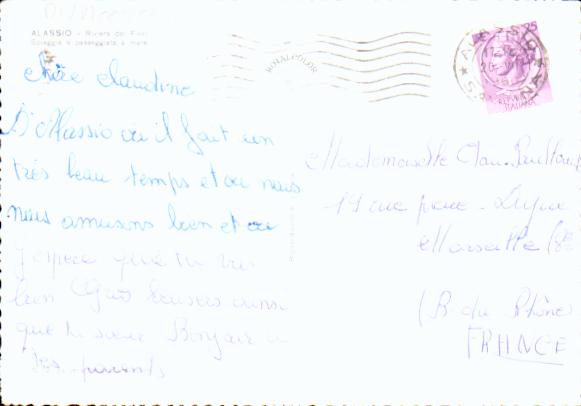 ALASSIO - Riviera dei Fiori
Spiaggia e passeggiata a mare
RONALCOLOR
ALASSIO
25
ITALIANA
Chère Claudine
D'Alassio où il fait un
très beau temps et où nous
nous amusons bien et où
J'espère que tu vas
bien Gros baisers ainsi
que ta sœur Bonjour a
tes parents
Mademoiselle
19 rue
Marseille
(B. du Rhône)
FRANCE